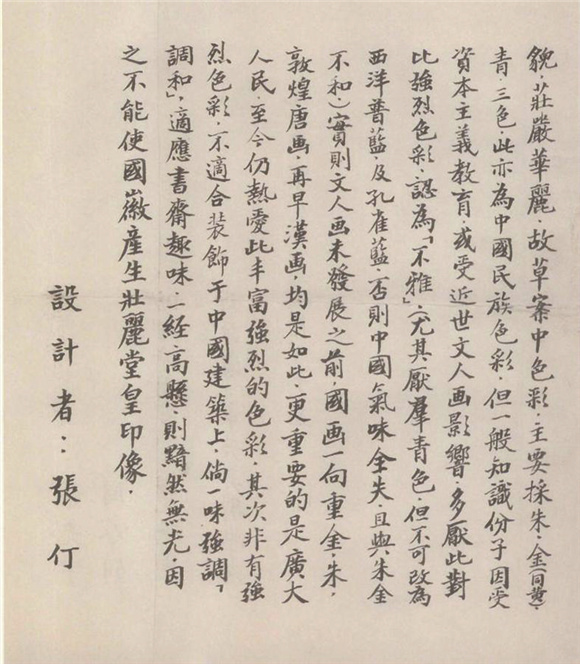 貌，莊嚴華麗，故草案中色彩，主要採朱、金(同黃)、
青、三色，此亦為中國民族色彩，但一般知識份子因受
資本主義教育，或受近世文人画影響，多厭此對
比強烈色彩，認為「不雅」，(尤其厭羣青色，但不可改為
西洋普藍，及孔雀藍，否則中國氣味全失，且與朱金
不和)實則文人画未發展之前，國画一向重金、朱，
敦煌唐画，再早漢画，均是如此，更重要的是廣大
人民，至今仍熱愛此丰富強烈的色彩，其次非有強
烈色彩，不適合裝飾于中國建築上，倘一味強調「
調和」，適應書齋趣味，一經高懸，則黯然無光，因
之不能使國徽產生壯麗堂皇印像。
設計者：張仃